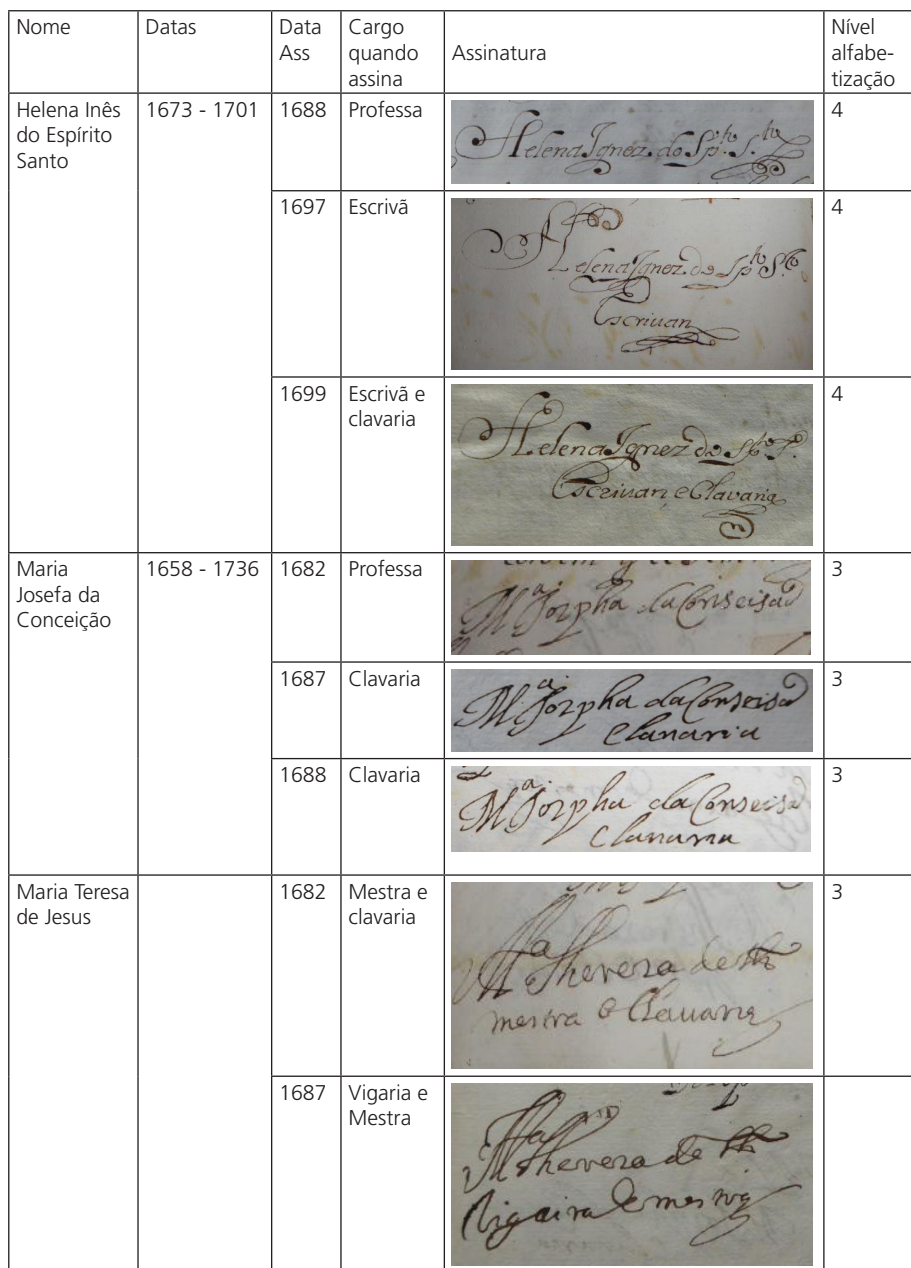 Nome Datas Data Ass Cargo quando assina Assinatura Nível alfabe-tização
Helena Inês do Espírito Santo 1673 - 1701 1688 Professa 4
Helena Ignez. do Spto. Sto
1697 Escrivã 4
Helena Ignez do Spto Sto
Escriuan
1699 Escrivã e clavaria 4
Helena Ignez do Spto
Escriuan e Clavaria
Maria Josefa da Conceição 1658 - 1736 1682 Professa 3
Ma Jozpha da Conseisaõ
1687 Clavaria 3
Ma Jozpha da Conseisaõ
Clauaria
1688 Clavaria 3
Ma Jozpha da Conseisaõ
Clauaria
Maria Teresa de Jesus 1682 Mestra e clavaria 3
Ma Thereza de
mestra e Clauaria
1687 Vigaria e Mestra
Ma Thereza de
Vigaira e mestra